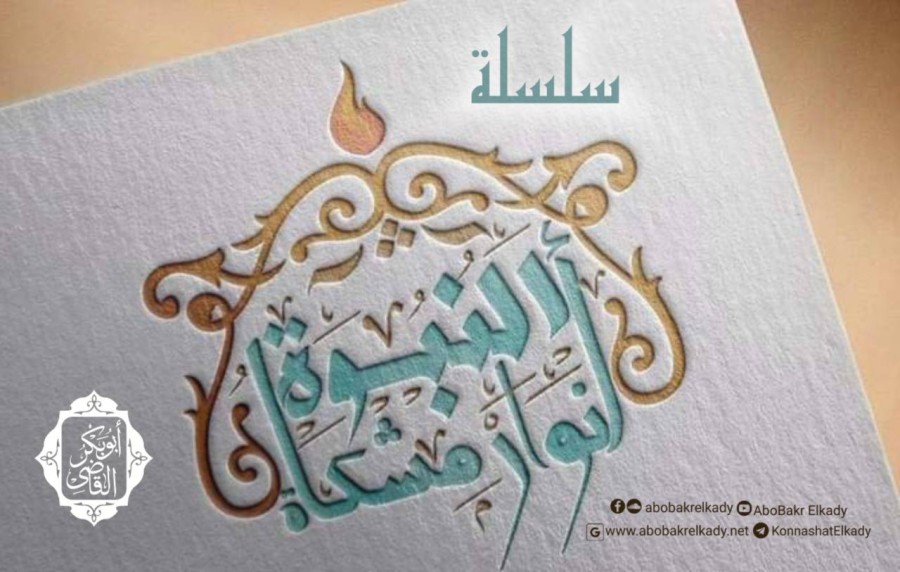 سلسلة
أنوار مشكاة
النبوة
أبوبكر
القاضي
abobakrelkady AboBakr Elkady
www.abobakrelkady.net KonnashatElkady